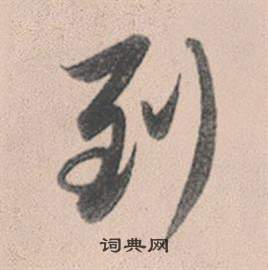 到
词典网